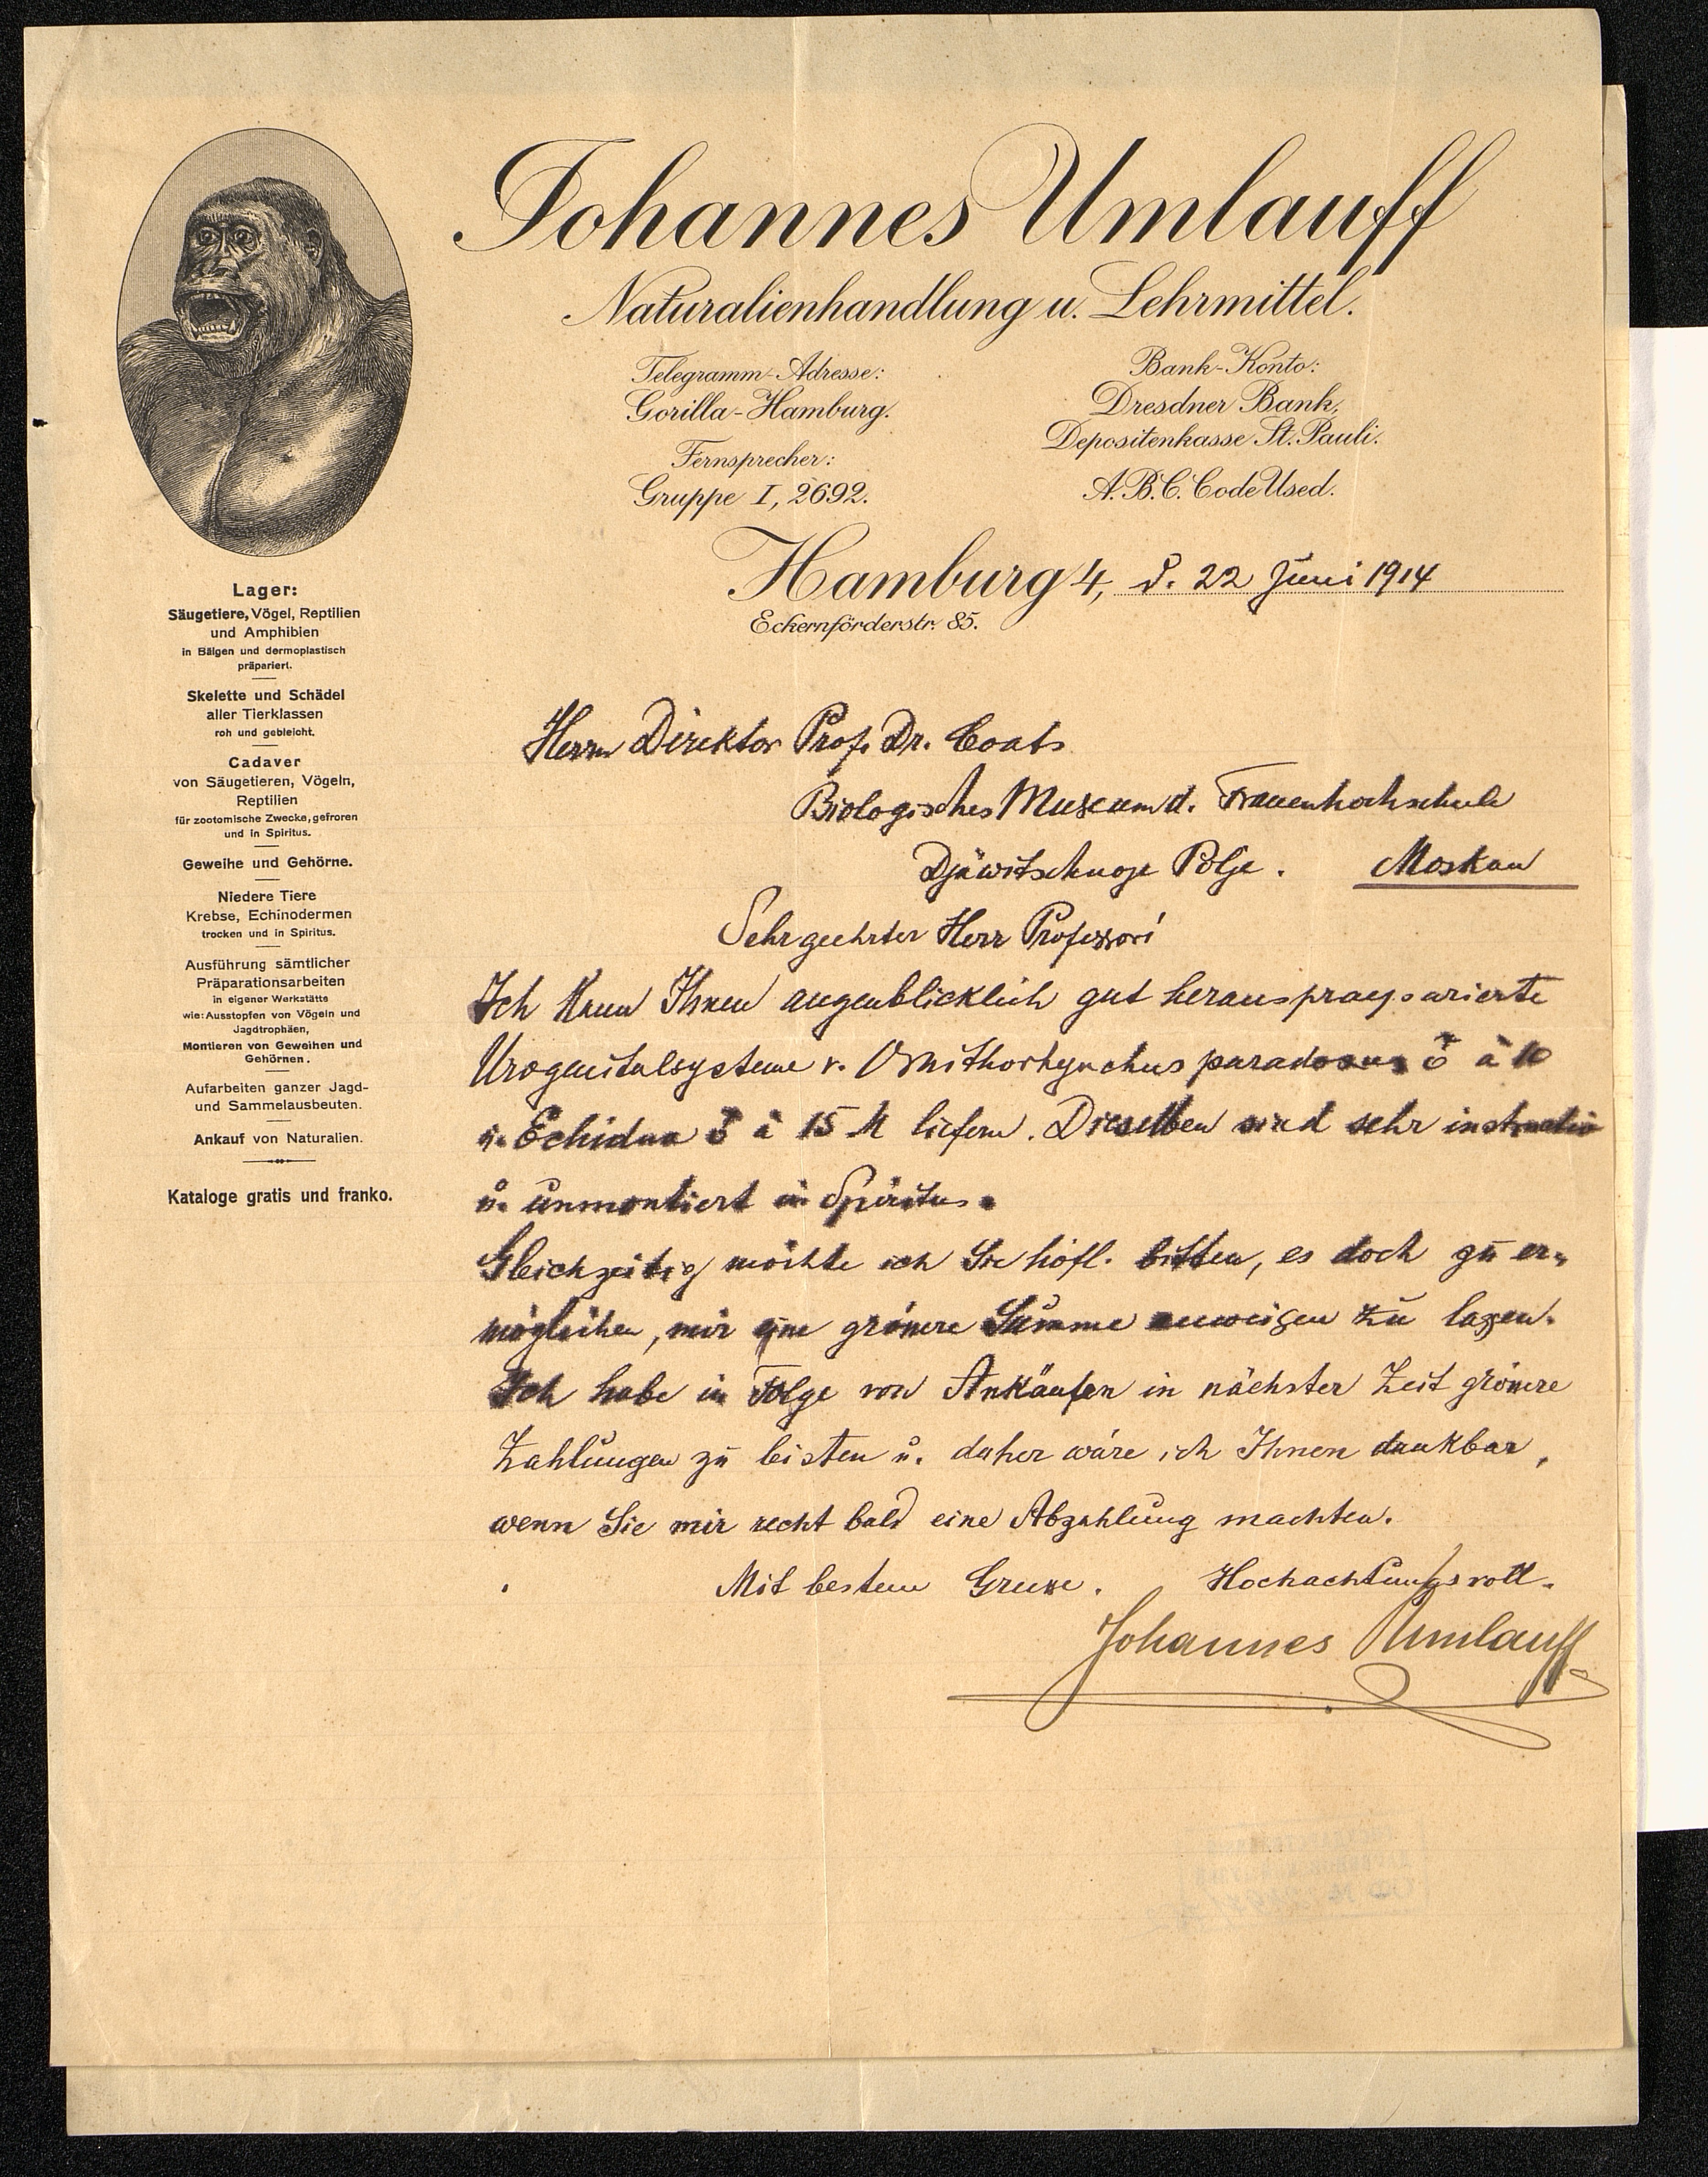 Johannes Umlauff
Naturalienhandlung u. Lehrmittel.
Telegramm-Adresse:
Gorilla-Hamburg.
Fernsprecher:
Gruppe I, 2692.
Bank-Konto:
Dresdner Bank,
Depositenkasse St. Pauli.
A.B.C. Code Used.
Hamburg 4, d. 22 Juni 1914
Eckernförderstr. 85.
Lager:
Säugetiere, Vögel, Reptilien
und Amphibien
in Bälgen und dermoplastisch
präpariert.
Skelette und Schädel
aller Tierklassen
roh und gebleicht.
Cadaver
von Säugetieren, Vögeln,
Reptilien
für zootomische Zwecke, gefroren
und in Spiritus.
Geweihe und Gehörne.
Niedere Tiere
Krebse, Echinodermen
trocken und in Spiritus.
Ausführung sämtlicher
Präparationsarbeiten
in eigener Werkstätte
wie: Ausstopfen von Vögeln und
Jagdtrophäen,
Montieren von Geweihen und
Gehörnen.
Aufarbeiten ganzer Jagd-
und Sammelausbeuten.
Ankauf von Naturalien.
Kataloge gratis und franko.
Herrn Direktor Prof. Dr. Coats
Biologisches Museum d. Frauenhochschule
Djäwitschnoje Polje. Moskau
Sehr geehrter Herr Professor!
Ich kann Ihnen augenblicklich gut herauspraeparierte
Urogenitalsysteme v. Ornithorhynchus paradoxus ♂ à 10
u. Echidna ♂ à 15 M liefern. Dieselben sind sehr instruktiv
u. unmontiert in Spiritus.
Gleichzeitig möchte ich Sie höfl. bitten, es doch zu er-
möglichen, mir eine grössere Summe anweisen zu lassen.
Ich habe in Folge von Ankäufen in nächster Zeit grössere
Zahlungen zu leisten u. daher wäre ich Ihnen dankbar,
wenn Sie mir recht bald eine Abzahlung machten.
Mit bestem Grusse. Hochachtungsvoll.
Johannes Umlauff